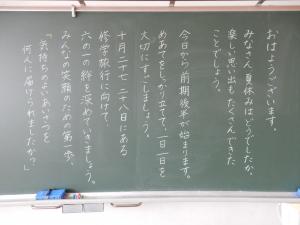 おはようございます。
みなさん、夏休みはどうでしたか。
楽しい思い出もたくさんできた
ことでしょう。
今日から前期後半が始まります。
めあてをしっかり立てて、一日一日を
大切にすごしましょう。
十月二十七、二十八日にある
修学旅行に向けて、
六の六の絆を深めていきましょう。
みんなの笑顔のための第一歩、
「気持ちのよいあいさつを
何人に届けられましたか?」